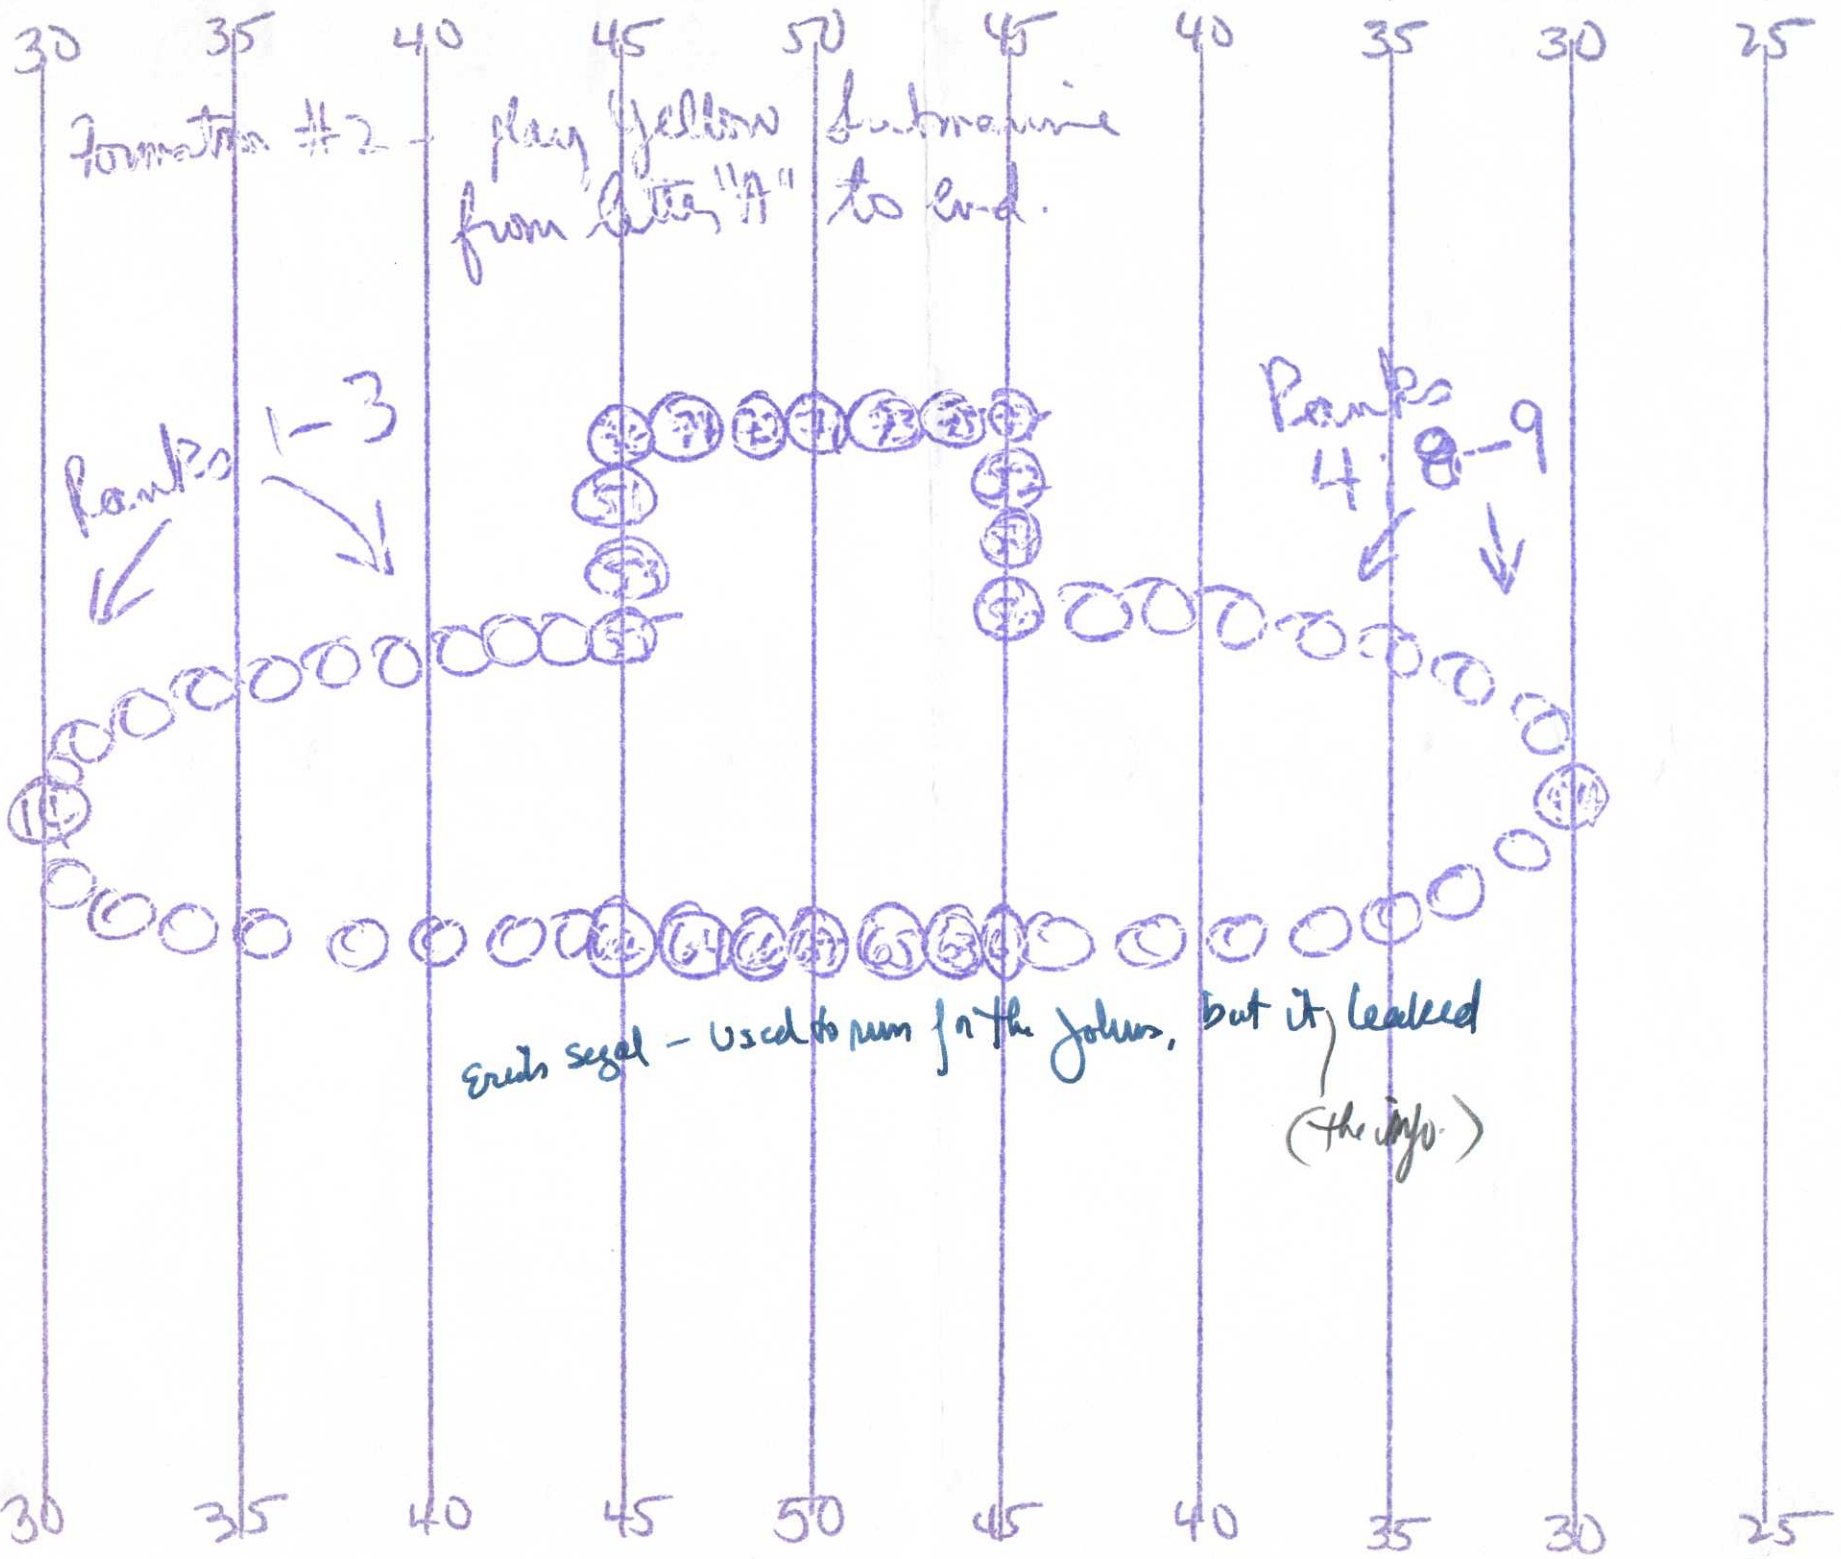 30 35 40 45 50 45 40 35 30 25
Formation #2 - play Yellow Submarine
from letter "A" to end.
Ranks 1-3
Ranks
4 8-9
51 52
53
64 65 63
Erich Segal - used to run for the Johns, but it leaked
(the info.)
30 35 40 45 50 45 40 35 30 25